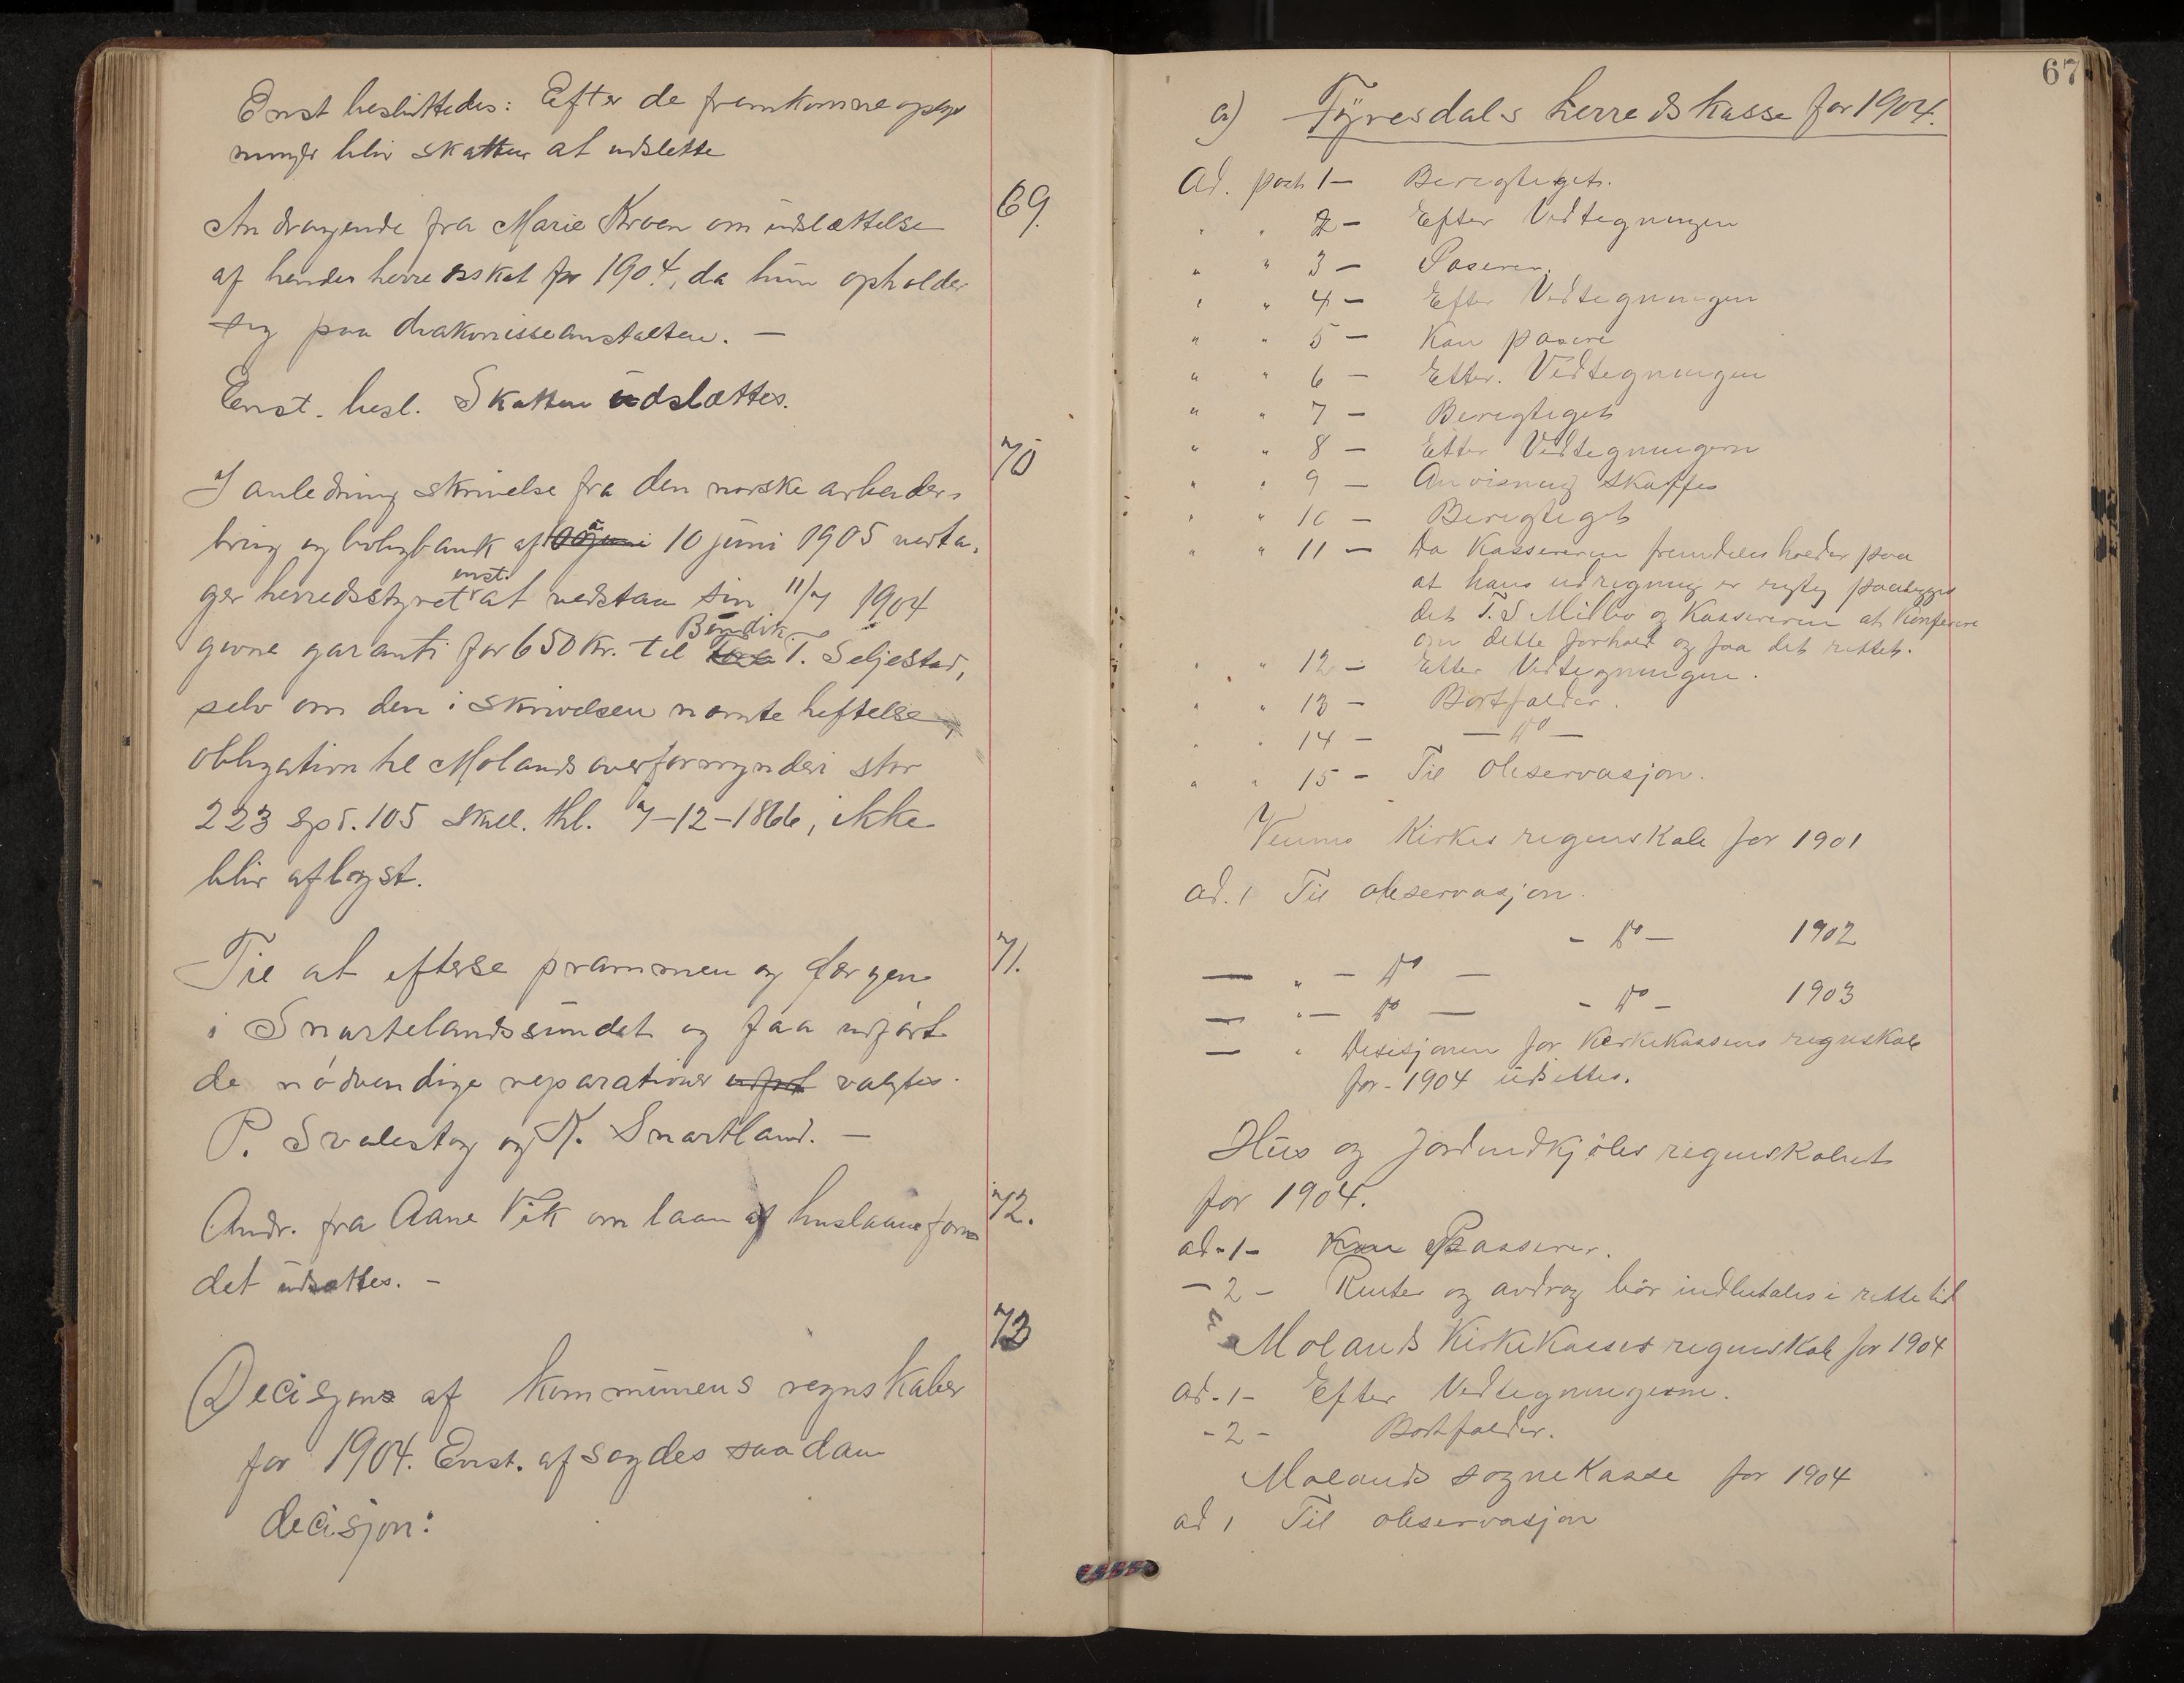 Enst besluttedes: Efter de fremkomne oplys
ninger blir skatten at udslette
69.
Andragende fra Marie Kroen om udslættelse
af hendes herredsskat for 1904, da hun opholder
sig paa diakonisseanstalten. —
Enst. besl. Skatten udslættes.
70
I anledning skrivelse fra den norske arbeider-
brug og boligbank af 10 juni 1905 vedta-
ger herredsstyret enst. at vedstaa sin 11/7 1904
givne garanti for 650 kr. til Bendik T. Seljestad,
selv om den i skrivelsen nævnte heftelse,
obligation til Molands overformynderi stor
223 spd. 105 skill. thl. 7-12-1866, ikke
blir aflyst.
71.
Til at efterse prammen og færgen
i Snartelandssundet og faa udført
de nødvendige reparationer valgtes
P. Svalestog og K. Snartland. —
72.
Andr. fra Aane Vik om laan af huslaanefon
det udsættes. —
73
Decisjons af kommunens regnskaber
for 1904. Enst. afsagdes saadan
decisjon:
67
a) Fyresdals herredskasse for 1904.
Ad. post 1 — Beregtiget.
" " 2 — Efter Vedtegningen
" " 3 — Paserer.
" " 4 — Efter Vedtegningen
" " 5 — Kan pasere
" " 6 — Etter. Vedtegningen
" " 7 — Beregtiget
" " 8 — Etter Vedtegningen
" " 9 — Anvisning skaffes
" " 10 — Beregtiget
" " 11 — Da Kassereren fremdeles holder paa
at hans udregning er rigtig paalegges
det T. S Millo og Kassereren at konferere
om dette forhold og faa det rettet.
" " 12 — Etter Vedtegningen.
" " 13 — Bortfalder.
" " 14 — — do —
" " 15 — Til Observasjon.
Veums Kirkes regnskab for 1901
ad. 1 Til observasjon.
- do — 1902
— " — do —
- do - 1903
— " — do —
— " Desisjonen for Kirkekassens regnskab
for - 1904 udsettes.
Hus og Jordindkjøbs regnskabet
for 1904.
ad - 1 - Passerer.
— 2 — Renter og avdrag bør indbetales i rette tid
Molands Kirkekasses regnskab for 1904
ad - 1 - Efter Vedtegningerne.
- 2 - Bortfalder.
Molands sognekasse for 1904
ad 1 Til observasjon